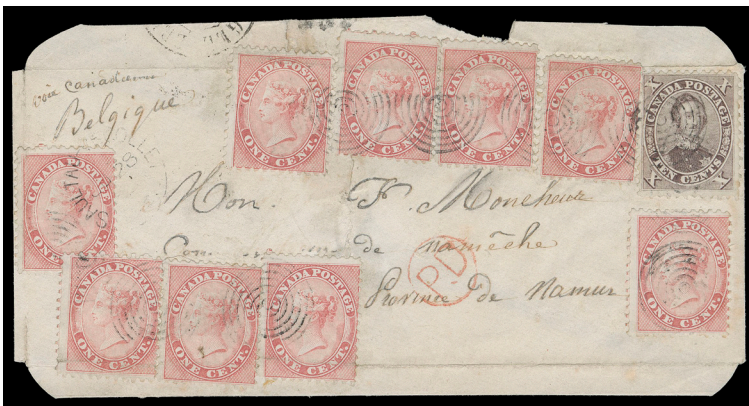 voie Canadienne
Belgique
CANADA POSTAGE
ONE CENT.
CANADA POSTAGE
ONE CENT.
CANADA POSTAGE
ONE CENT.
CANADA POSTAGE
ONE CENT.
X CANADA POSTAGE X
X TEN CENTS X
CANADA POSTAGE
ONE CENT.
Mon. F. Moncheur
de namêche
Province de Namur
PD
CANADA POSTAGE
ONE CENT.
CANADA POSTAGE
ONE CENT.
CANADA POSTAGE
ONE CENT.
CANADA POSTAGE
ONE CENT.